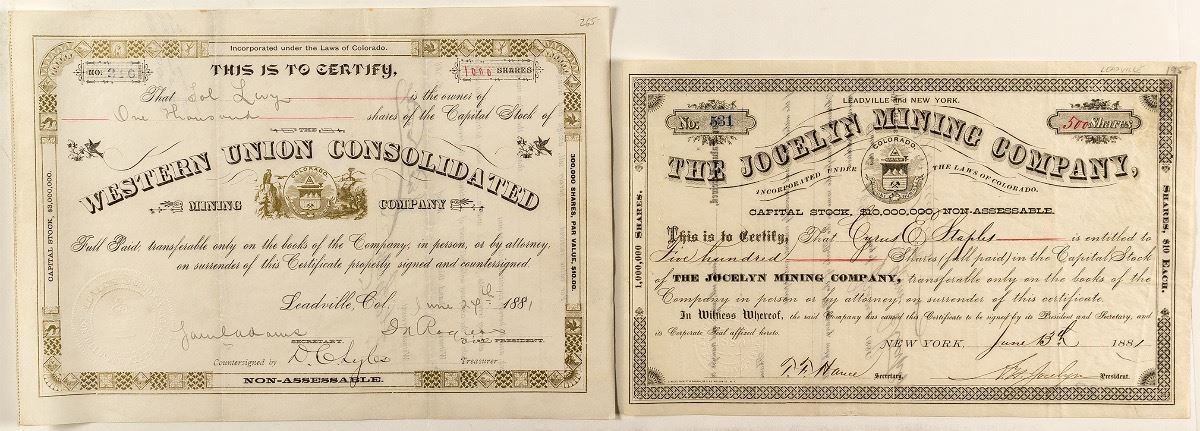 265
Incorporated under the Laws of Colorado.
NO.
1000 SHARES
THIS IS TO CERTIFY,
That Sol Levy is the owner of
One Thousand shares of the Capital Stock of
THE
WESTERN UNION CONSOLIDATED
COLORADO.
MINING COMPANY
Full Paid, transferable only on the books of the Company, in person, or by attorney,
on surrender of this Certificate properly signed and countersigned.
Leadville, Col. June 1881
SECRETARY.
VICE PRESIDENT.
Countersigned by D C Lyles Treasurer
NON-ASSESSABLE.
CAPITAL STOCK, $3,000,000.
300,000 SHARES, PAR VALUE, $10.00.
LEADVILLE
LEADVILLE and NEW YORK.
No. 531
500 Shares
THE JOCELYN MINING COMPANY,
COLORADO.
INCORPORATED UNDER THE LAWS OF COLORADO.
CAPITAL STOCK, $10,000,000, NON-ASSESSABLE.
This is to Certify, That Cyrus E. Staples is entitled to
Five hundred Shares (full paid) in the Capital Stock
of THE JOCELYN MINING COMPANY, transferable only on the books of the
Company in person or by attorney, on surrender of this certificate.
In Witness Whereof, the said Company has caused this Certificate to be signed by its President and Secretary, and
its Corporate Seal affixed hereto.
NEW YORK, June 13th 1881
Secretary.
President.
1,000,000 SHARES.
SHARES, $10 EACH.